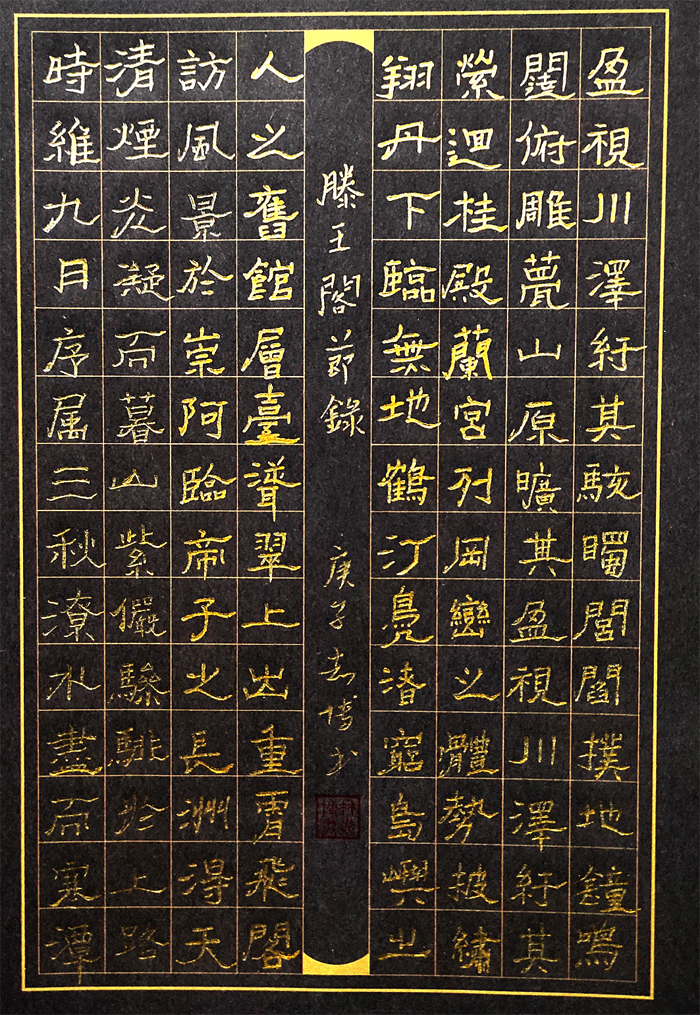 時維九月序属三秋潦水盡而寒潭
清煙炎凝而暮山紫儼驂騑於上路
訪風景於崇阿臨帝子之長洲得天
人之舊館層臺聳翠上出重霄飛閣
滕王閣節錄
庚子志博书
翔丹下臨無地鶴汀鳧渚窮島嶼之
縈迴桂殿蘭宮列岡巒之體勢披繡
闥俯雕甍山原曠其盈視川澤紆其
盈視川澤紆其駭矚閭閻撲地鐘鳴